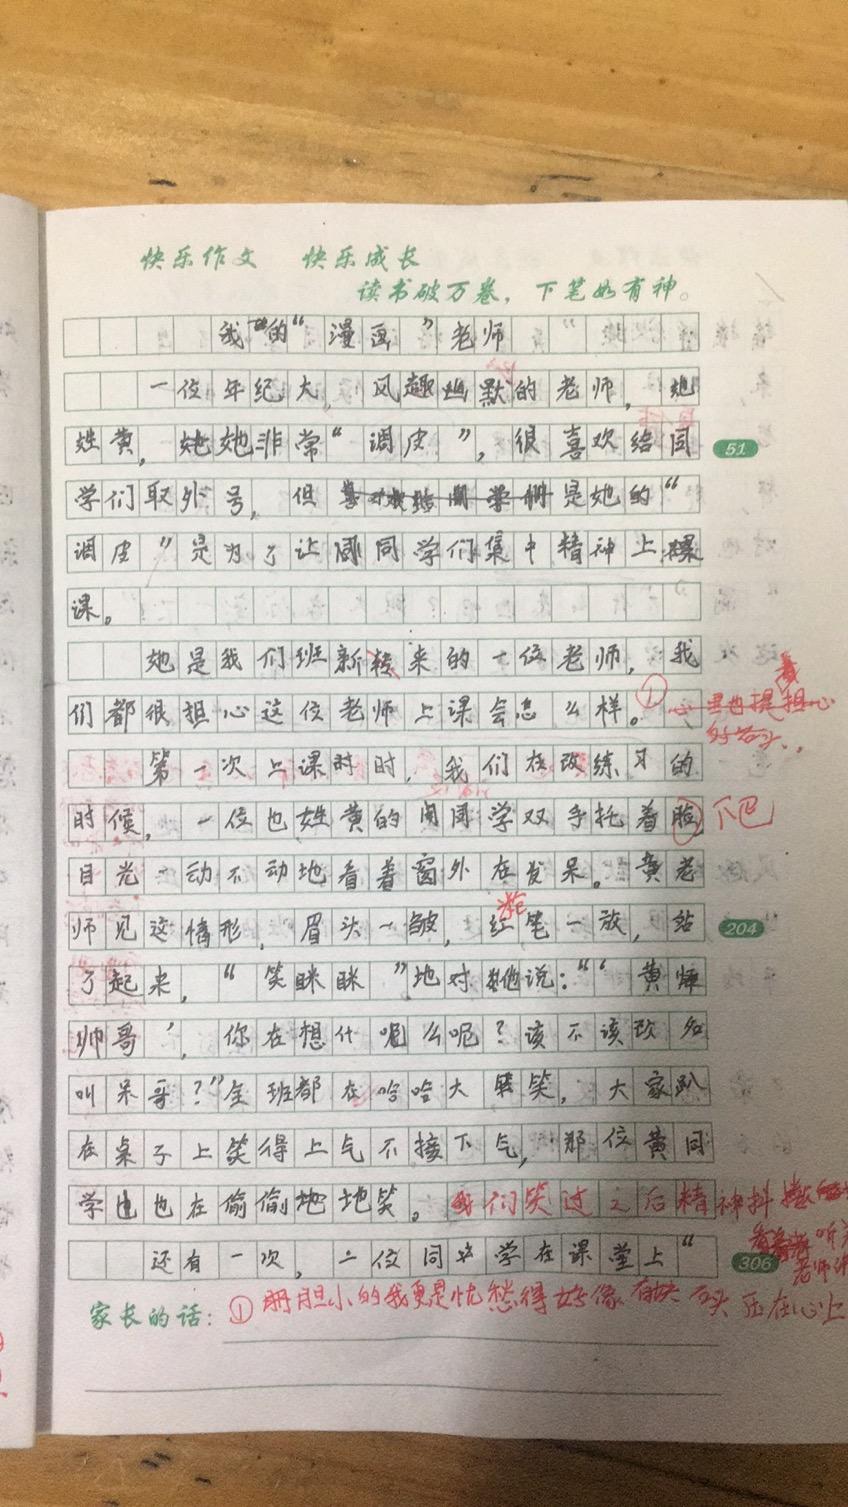 快乐作文 快乐成长
读书破万卷，下笔如有神。
我的“漫画”老师
一位年纪大，风趣幽默的老师，她
姓黄，她她非常“调皮”，很喜欢给同
51
学们取外号，但是她的“
调皮”是为了让同同学们集中精神上课
课。
她是我们班新转来的一位老师，我
们都很担心这位老师上课会怎么样。①
第一次上课时时，我们在改练习的
时候，一位也姓黄的同同学双手托着脸 下巴
目光一动不动地看着窗外在发呆。黄老
师见这情形，眉头一皱，红笔一放，站
204
了起来，“笑眯眯”地对他说：“‘黄帅
帅哥’，你在想什呢么呢？该不该改名
叫呆哥？”全班都在哈哈大笑，大家趴
在桌子上笑得上气不接下气，那位黄同
学也也在偷偷地地笑。我们笑过之后精神抖擞
还有一次，一位同学在课堂上“
306
家长的话：①胆小的我更是忧愁得好像有块石头压在心上